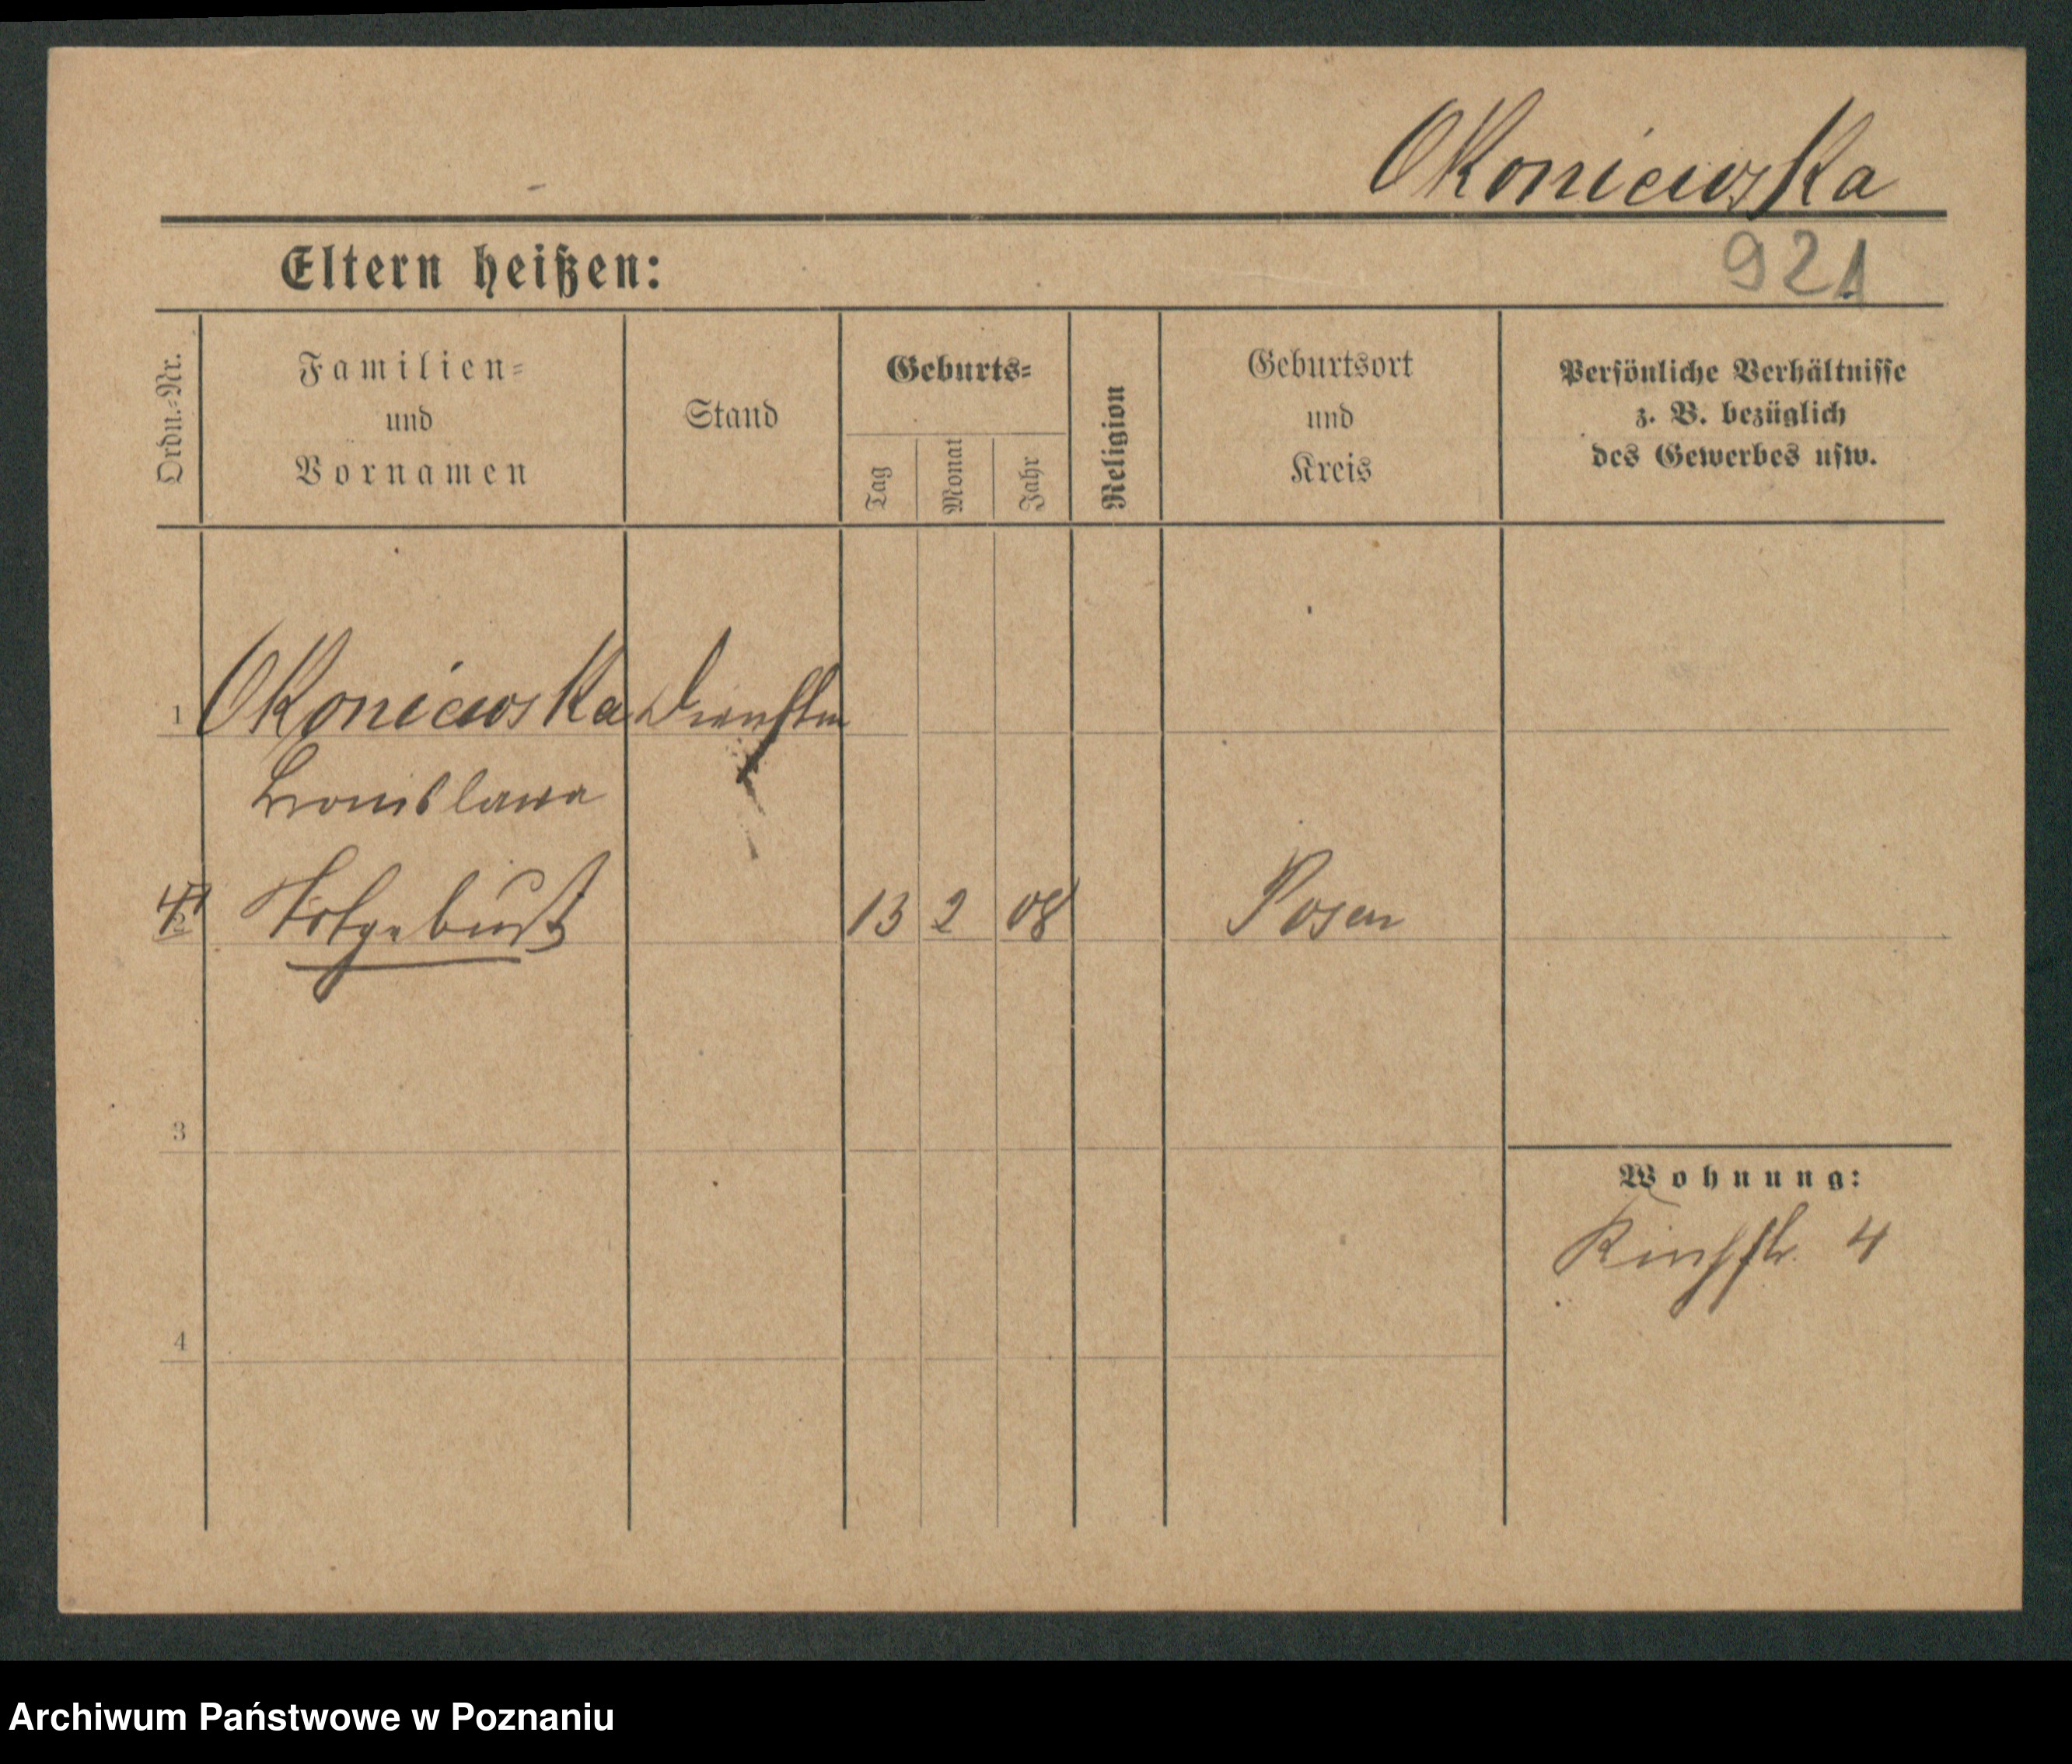 Okoniewska
Eltern heißen:
921
Ordn.-Nr.
Familien-
und
Vornamen
Stand
Geburts-
Tag
Monat
Jahr
Religion
Geburtsort
und
Kreis
Persönliche Verhältnisse
z. B. bezüglich
des Gewerbes usw.
1 Okoniewska
Bronislawa
Totgeburt 13 2 08 Posen
3
Wohnung:
4
4
Archiwum Państwowe w Poznaniu